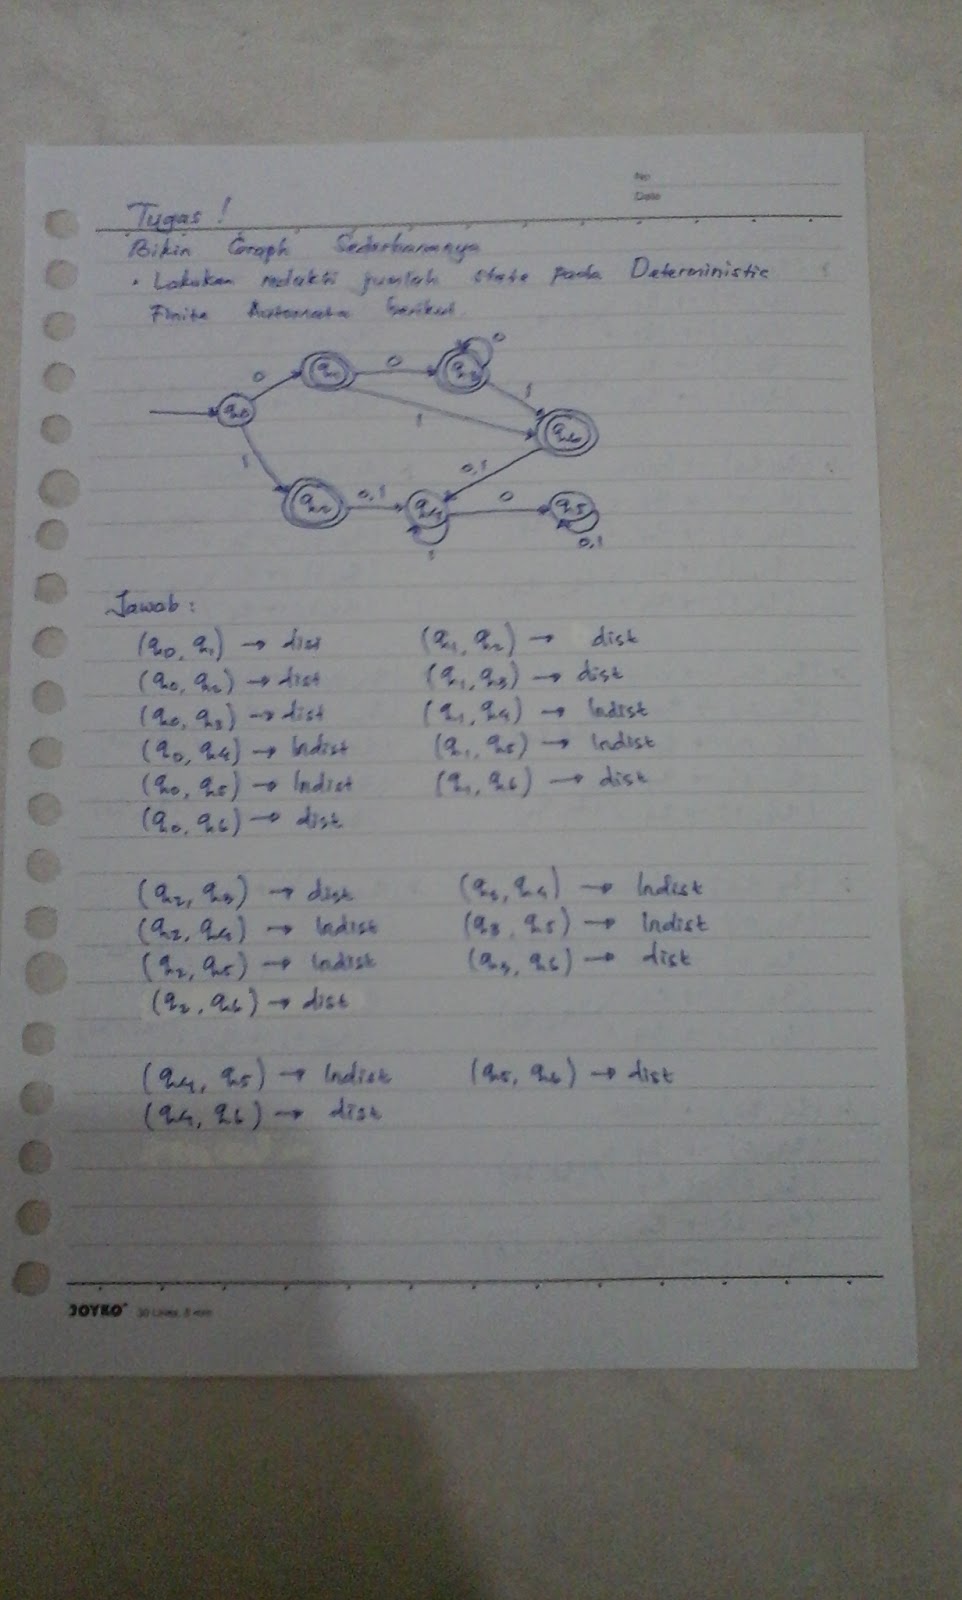 No
Date
Tugas !
Bikin Graph Sederhananya
• Lakukan reduksi jumlah state pada Deterministic
Finite Automata berikut
0
q1
0
q3
0
q0
1
1
q6
1
0,1
q2
0,1
q4
0
q5
1
0,1
Jawab :
(q0, q1) → dist (q1, q2) → dist
(q0, q2) → dist (q1, q3) → dist
(q0, q3) → dist (q1, q4) → Indist
(q0, q4) → Indist (q1, q5) → Indist
(q0, q5) → Indist (q1, q6) → dist
(q0, q6) → dist
(q2, q3) → dist (q3, q4) → Indist
(q2, q4) → Indist (q3, q5) → Indist
(q2, q5) → Indist (q3, q6) → dist
(q2, q6) → dist
(q4, q5) → Indist (q5, q6) → dist
(q4, q6) → dist
JOYKO 30 Lines, 8 mm